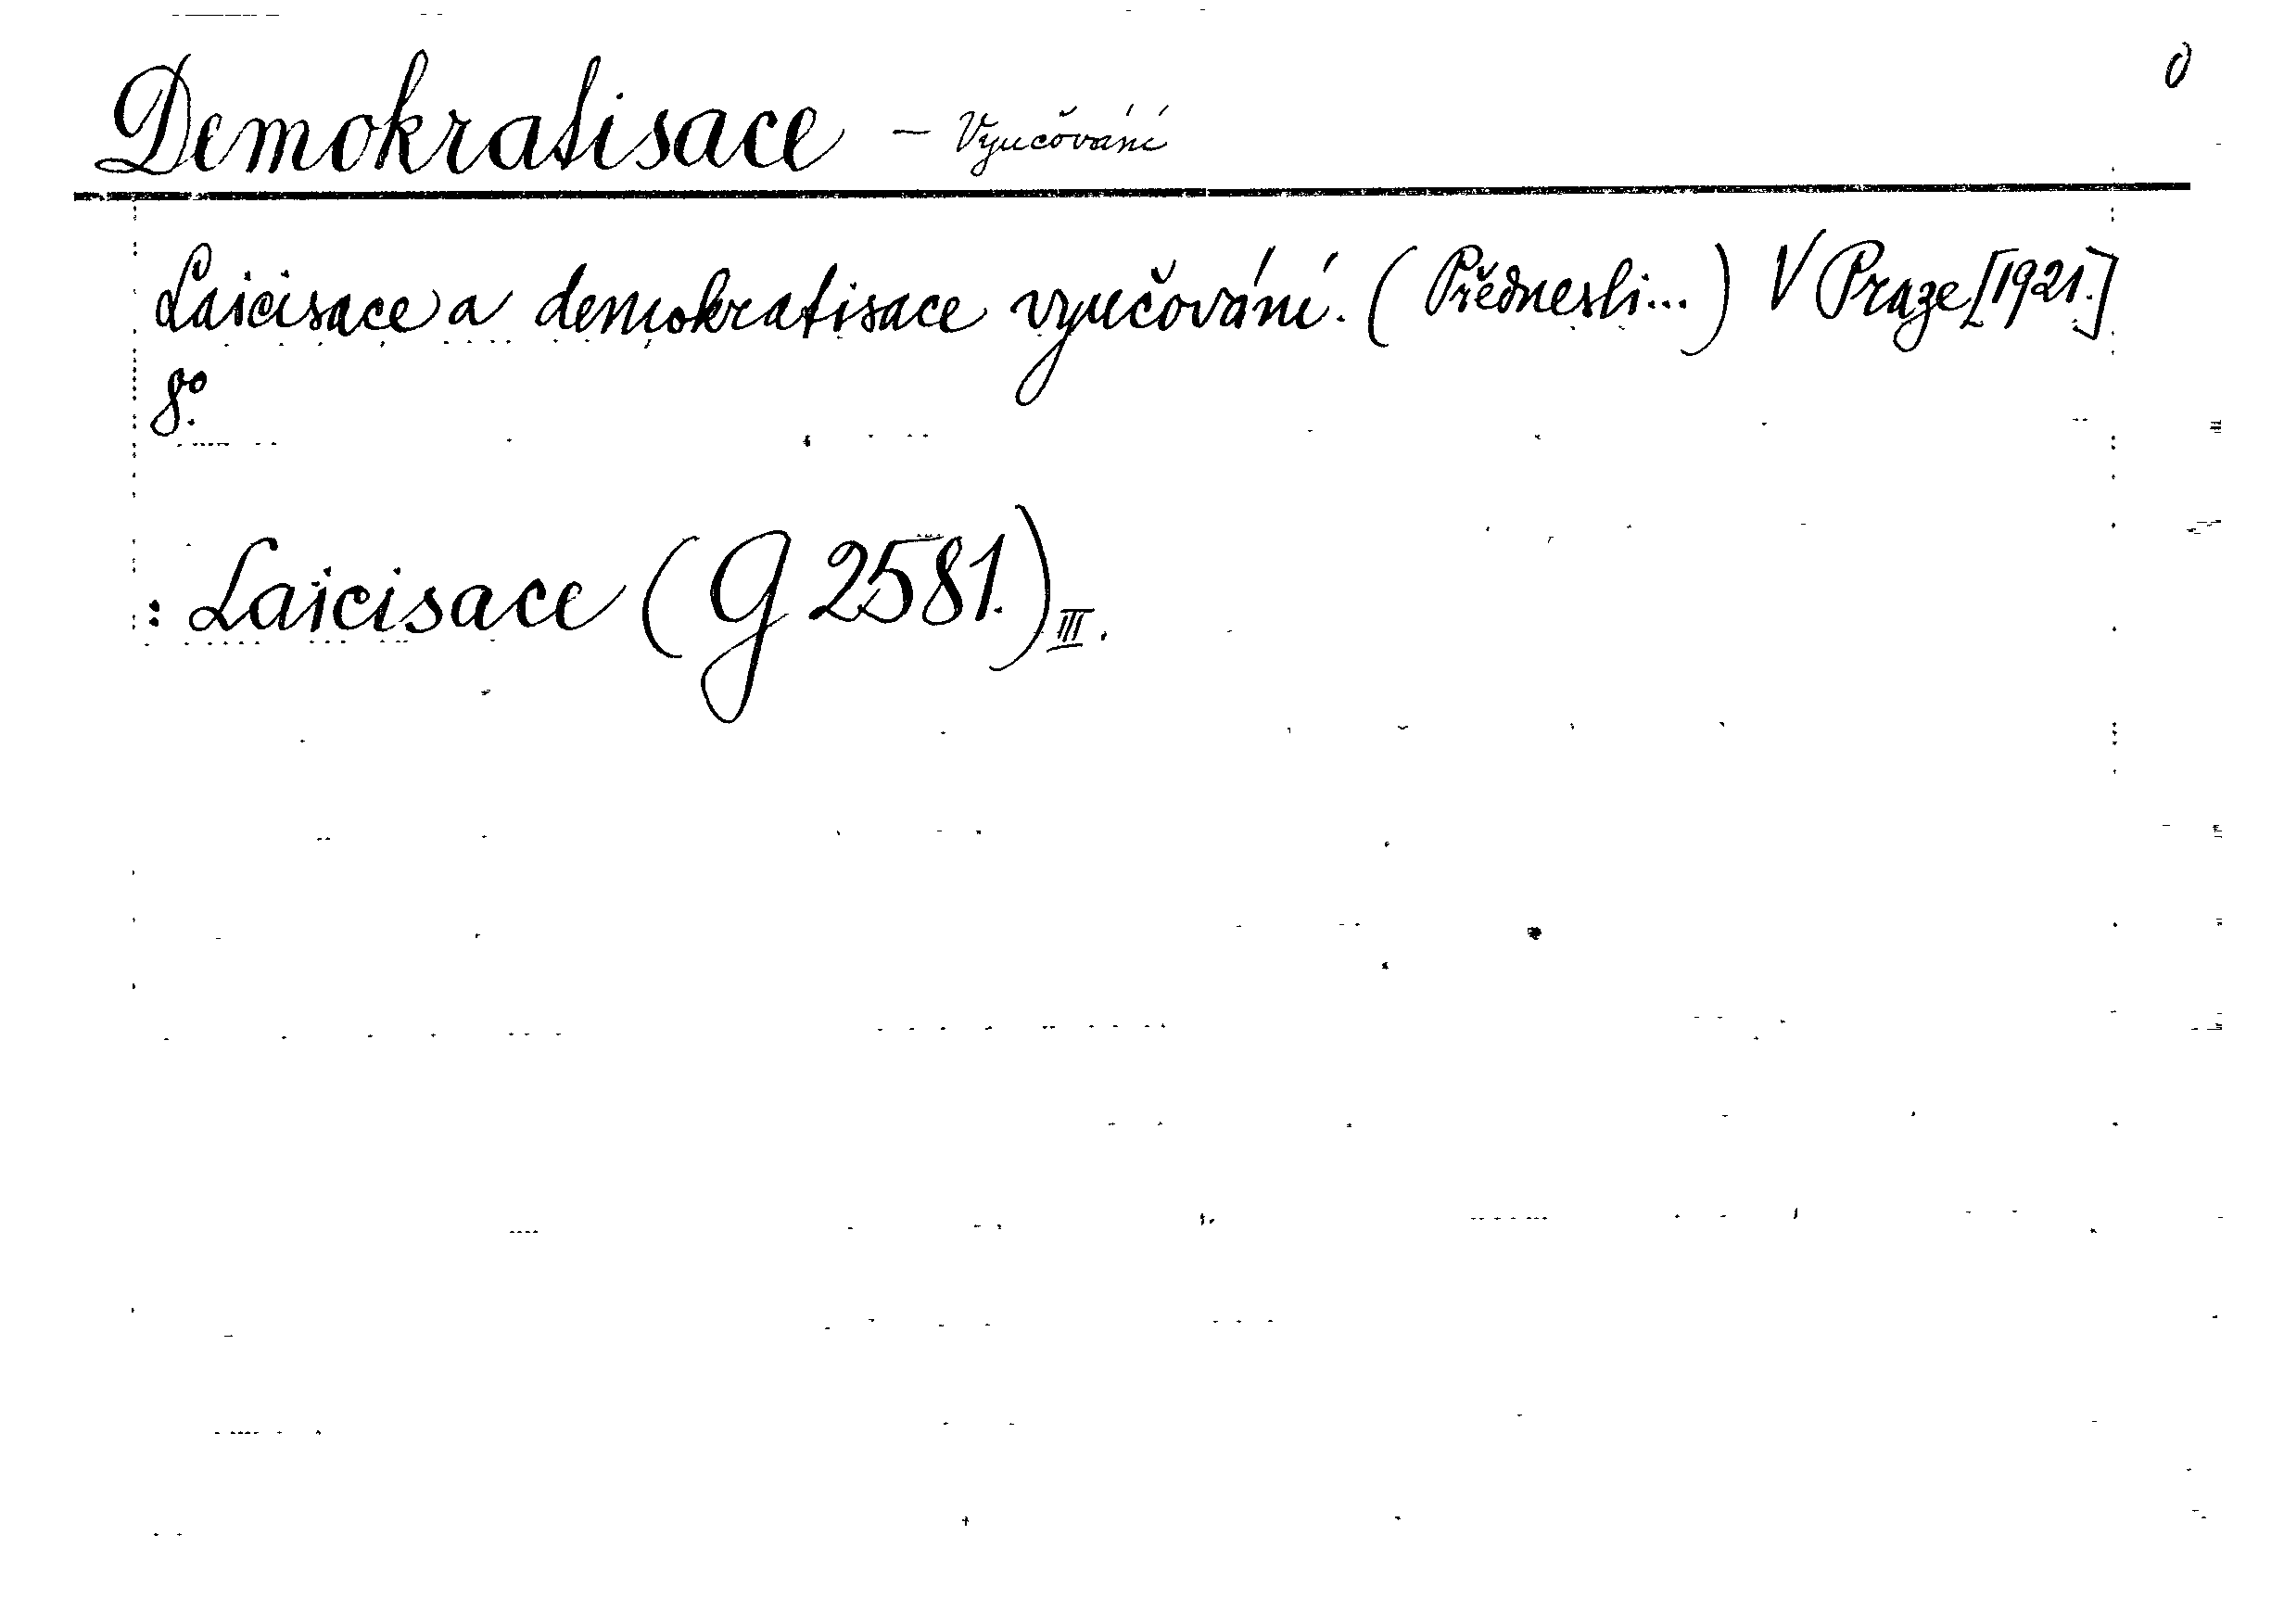 Demokratisace – Vyučování
0
Laicisace a demokratisace vyučování. (Přednesli...) V Praze [1921.]
8º.
: Laicisace (G 2581.) III.